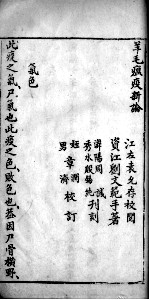 羊毛瘟疫新論
江左袁允存校閱
資江劉文範手著
漭陽周誠
秀水殷錫純刊刻
姪章潤
男濟校訂
氣色
此疫之氣尸氣也此疫之色敗色也蓋因尸骨橫野